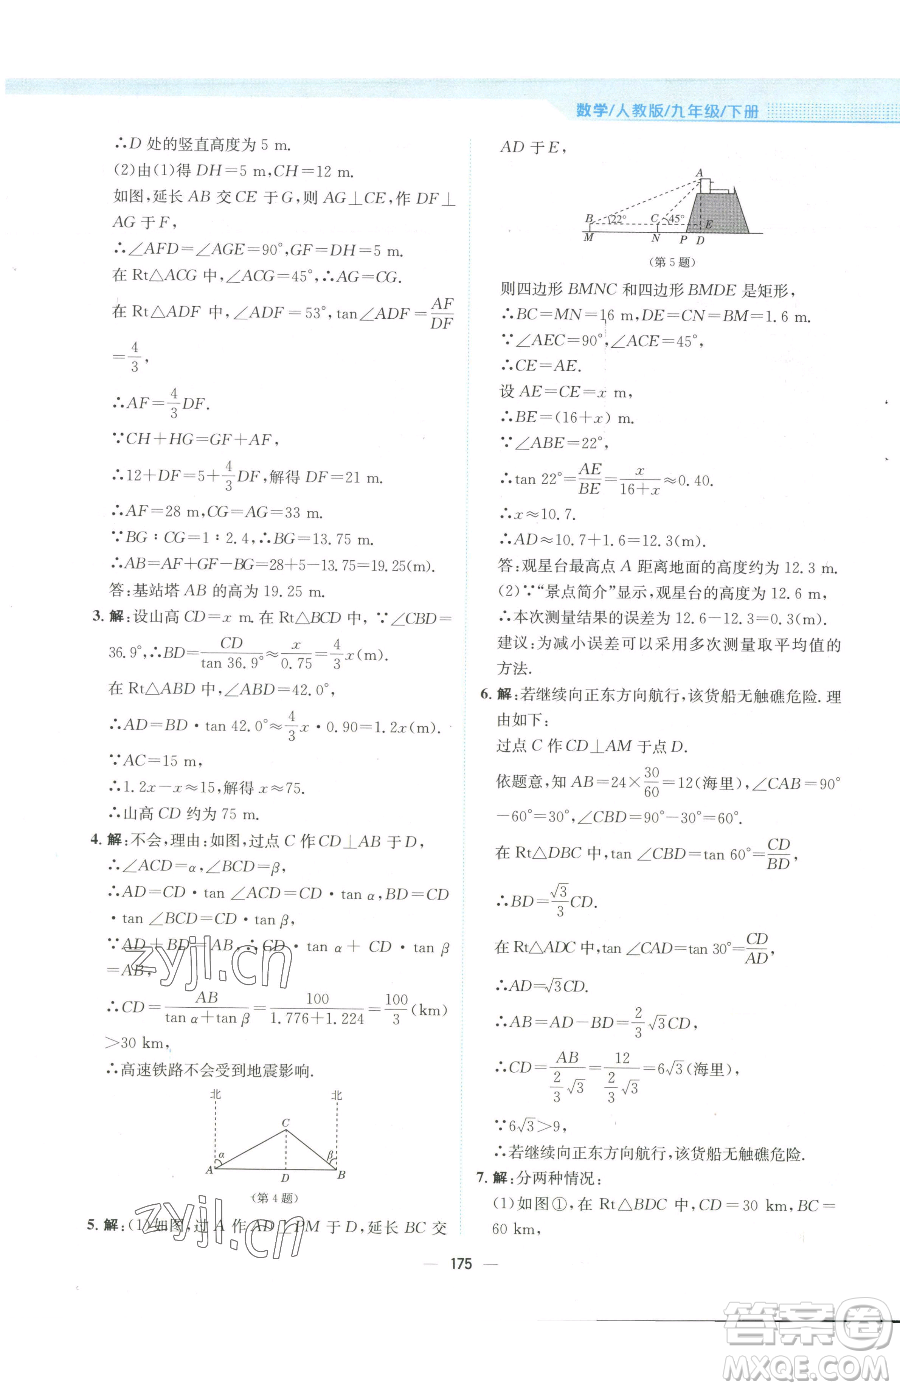 数学/人教版/九年级/下册
∴D 处的竖直高度为 5 m.
(2)由(1)得 DH=5 m,CH=12 m.
如图,延长 AB 交 CE 于 G,则 AG⊥CE,作 DF⊥
AG 于 F,
∴∠AFD=∠AGE=90°,FG=DH=5 m.
在 Rt△ACG 中,∠ACG=45°,∴AG=CG.
在 Rt△ADF 中,∠ADF=53°,tan∠ADF=AF/DF
=4/3,
∴AF=4/3DF.
∵CH+HG=GF+AF,
∴12+DF=5+4/3DF,解得 DF=21 m.
∴AF=28 m,CG=AG=33 m.
∵BG∶CG=1∶2.4,∴BG=13.75 m.
∴AB=AF+GF-BG=28+5-13.75=19.25(m)
答:基站塔 AB 的高为 19.25 m.
3. 解:设山高 CD=x m.在 Rt△BCD 中,∵∠CBD=
36.9°,∴BD=CD/tan 36.9°≈x/0.75=4/3x(m).
在 Rt△ABD 中,∠ABD=42.0°,
∴AD=BD·tan 42.0°≈4/3x·0.90=1.2x(m).
∵AC=15 m,
∴1.2x-x≈15,解得 x≈75.
∴山高 CD 约为 75 m.
4. 解:不会,理由:如图,过点 C 作 CD⊥AB 于 D,
∴∠ACD=α,∠BCD=β,
∴AD=CD·tan ∠ACD=CD·tan α,BD=CD
·tan ∠BCD=CD·tan β.
∵AD+BD=AB,∴CD·tan α+CD·tan β
=AB,
∴CD=AB/(tan α+tan β)=100/(1.776+1.224)=100/3(km)
>30 km,
∴高速铁路不会受到地震影响.
北 北
C
α β
A D B
(第 4 题)
5. 解:(1)如图,过 A 作 AD⊥PM 于 D,延长 BC 交
AD 于 E,
A
B 22° C 45° E
M N P D
(第 5 题)
则四边形 BMNC 和四边形 BMDE 是矩形,
∴BC=MN=16 m,DE=CN=BM=1.6 m.
∵∠AEC=90°,∠ACE=45°,
∴CE=AE.
设 AE=CE=x m,
∴BE=(16+x) m.
∵∠ABE=22°,
∴tan 22°=AE/BE=x/(16+x)≈0.40.
∴x≈10.7.
∴AD≈10.7+1.6=12.3(m).
答:观星台最高点 A 距离地面的高度约为 12.3 m.
(2)∵“景点简介”显示,观星台的高度为 12.6 m,
∴本次测量结果的误差为 12.6-12.3=0.3(m).
建议:为减小误差可以采用多次测量取平均值的
方法.
6. 解:若继续向正东方向航行,该货船无触礁危险. 理
由如下:
过点 C 作 CD⊥AM 于点 D.
依题意,知 AB=24×30/60=12(海里),∠CAB=90°
-60°=30°,∠CBD=90°-30°=60°.
在 Rt△DBC 中,tan ∠CBD=tan 60°=CD/BD,
∴BD=√3/3CD.
在 Rt△ADC 中,tan ∠CAD=tan 30°=CD/AD,
∴AD=√3CD.
∴AB=AD-BD=2/3√3CD.
∴CD=AB/(2/3√3)=12/(2/3√3)=6√3(海里),
∵6√3>9,
∴若继续向正东方向航行,该货船无触礁危险.
7. 解:分两种情况:
(1)如图①,在 Rt△BDC 中,CD=30 km,BC=
60 km,
— 175 —
zyjl.cn
zyjl.cn
答案圈
MXQE.COM